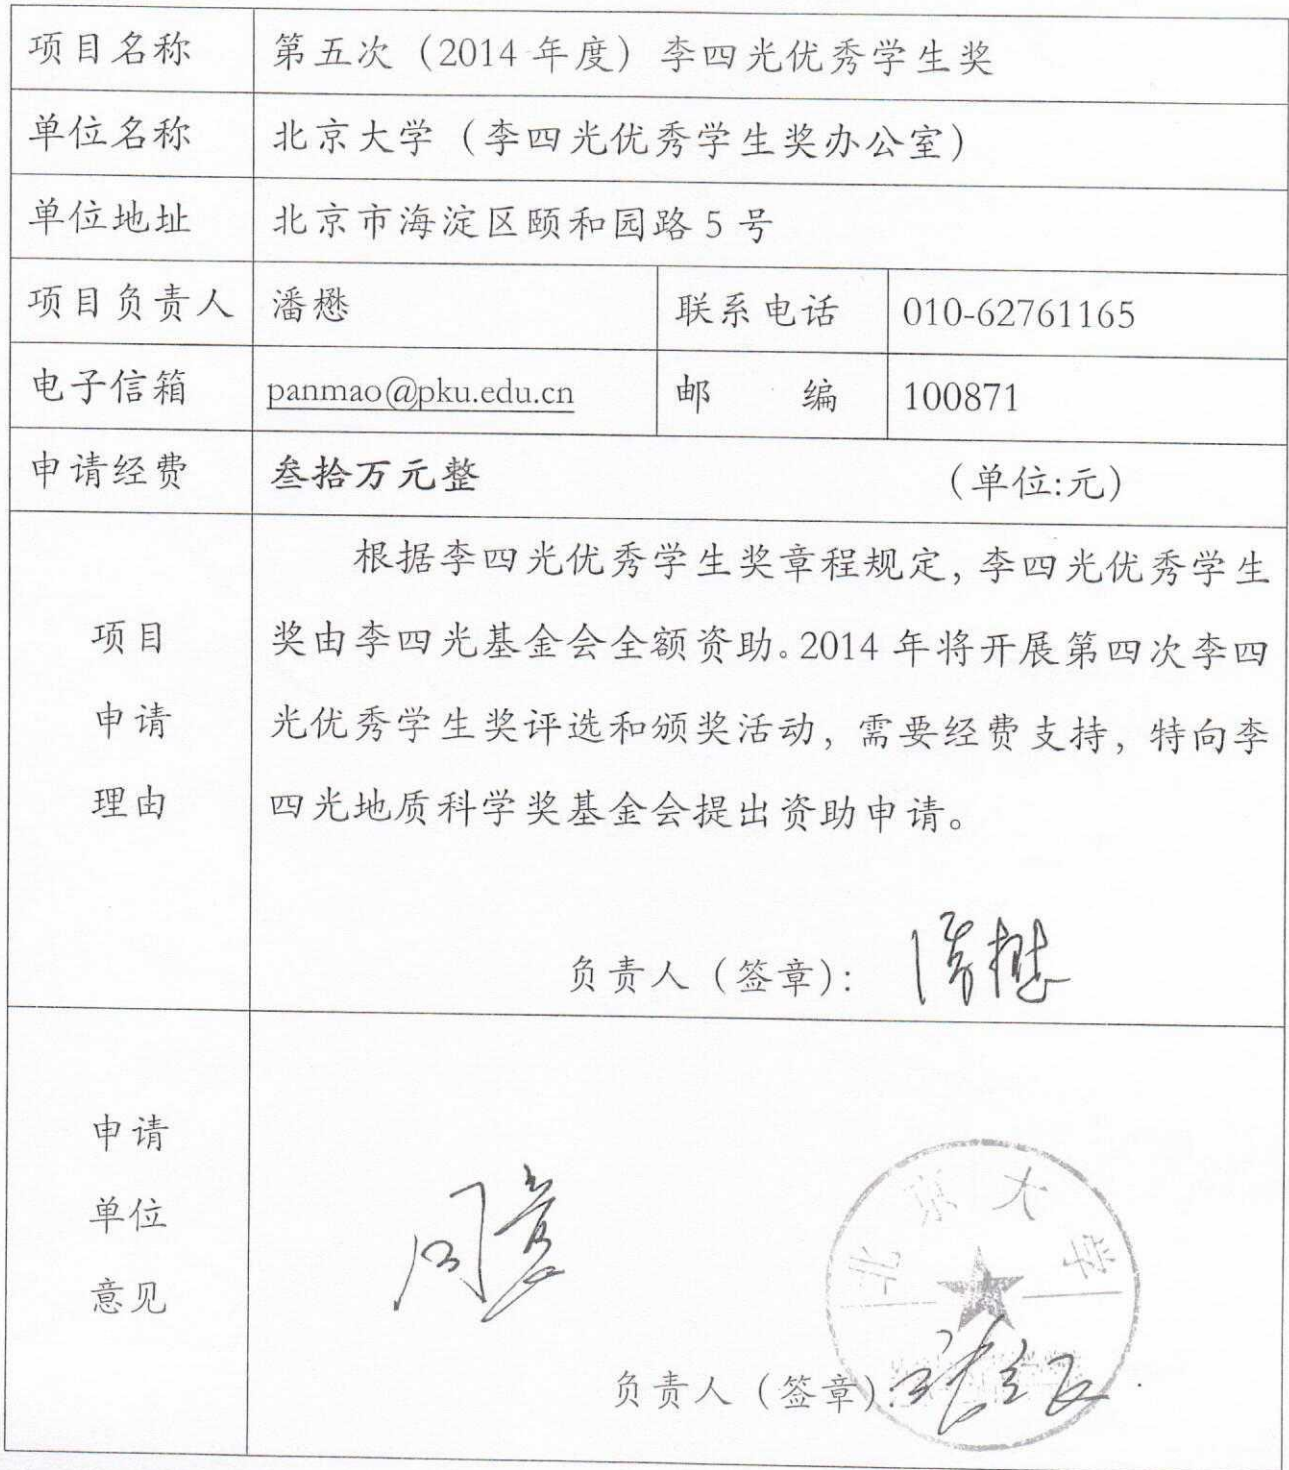 项目名称 第五次（2014年度）李四光优秀学生奖
单位名称 北京大学（李四光优秀学生奖办公室）
单位地址 北京市海淀区颐和园路5号
项目负责人 潘懋 联系电话 010-62761165
电子信箱 panmao@pku.edu.cn 邮 编 100871
申请经费 叁拾万元整 （单位:元）
项目
申请
理由
根据李四光优秀学生奖章程规定，李四光优秀学生
奖由李四光基金会全额资助。2014年将开展第四次李四
光优秀学生奖评选和颁奖活动，需要经费支持，特向李
四光地质科学奖基金会提出资助申请。
负责人（签章）： 潘懋
申请
单位
意见
同意
北京大学
负责人（签章）